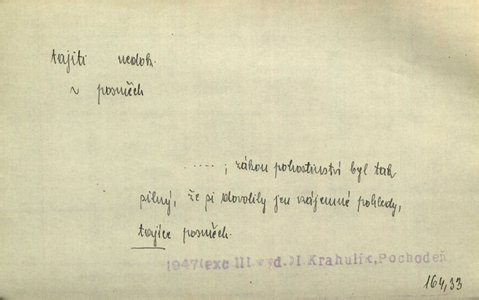 tajiti nedok.
~ posměch
....; zákon pohostinství byl tak
silný, že si dovolily jen vzájemné pohledy,
tajíce posměch.
1947(exc III Krahulík, Pochodeň
164,33